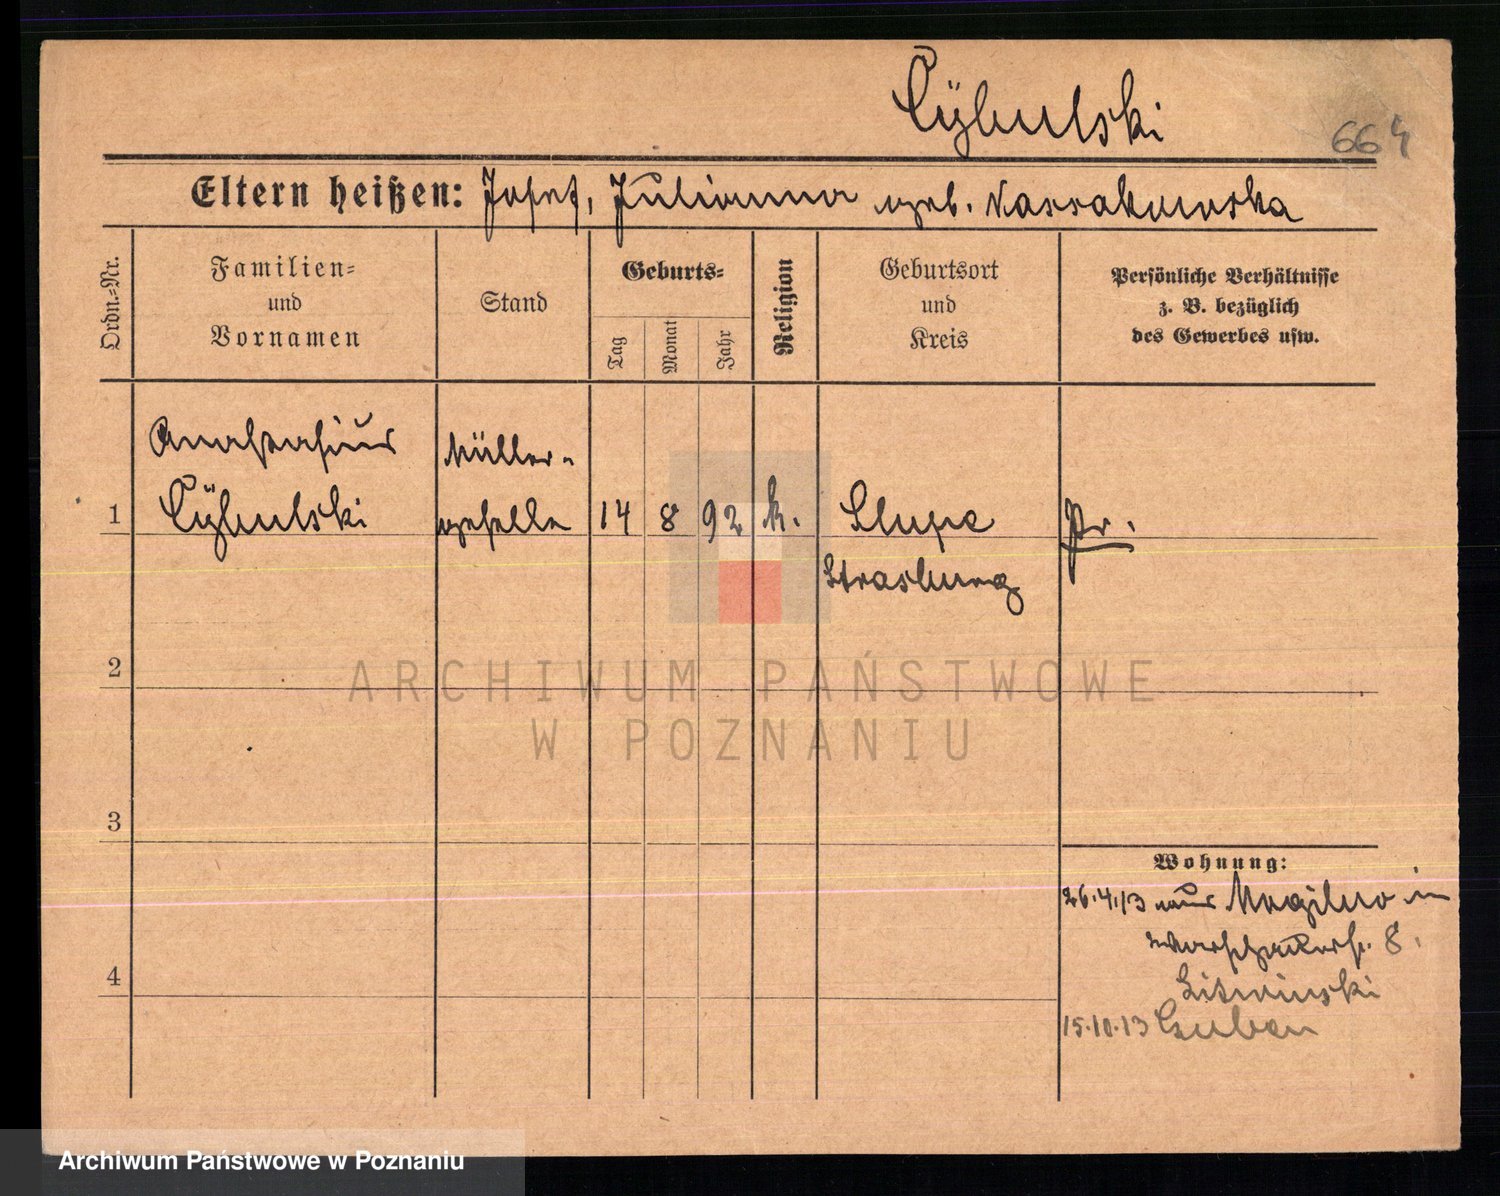 Cÿbulski
664
Eltern heißen: Josef, Julianna geb. Kassakowska
Ordn.=Nr.
Familien=
und
Vornamen
Stand
Geburts=
Tag
Monat
Jahr
Religion
Geburtsort
und
Kreis
Persönliche Verhältnisse
z. B. bezüglich
des Gewerbes usw.
Anastasius
Müller-
1 Cÿbulski geselle 14 8 92 k. Slupe Pr.
Strasburg
2
3
4
Wohnung:
26.4.13 aus Mogilno in
Warschauerstr. 8.
Litwinski
15.10.13 Guben
ARCHIWUM PAŃSTWOWE
W POZNANIU
Archiwum Państwowe w Poznaniu